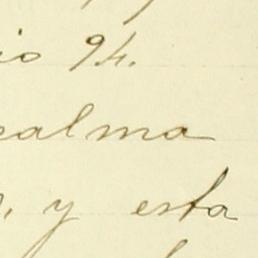 io 94.
palma
, y esta